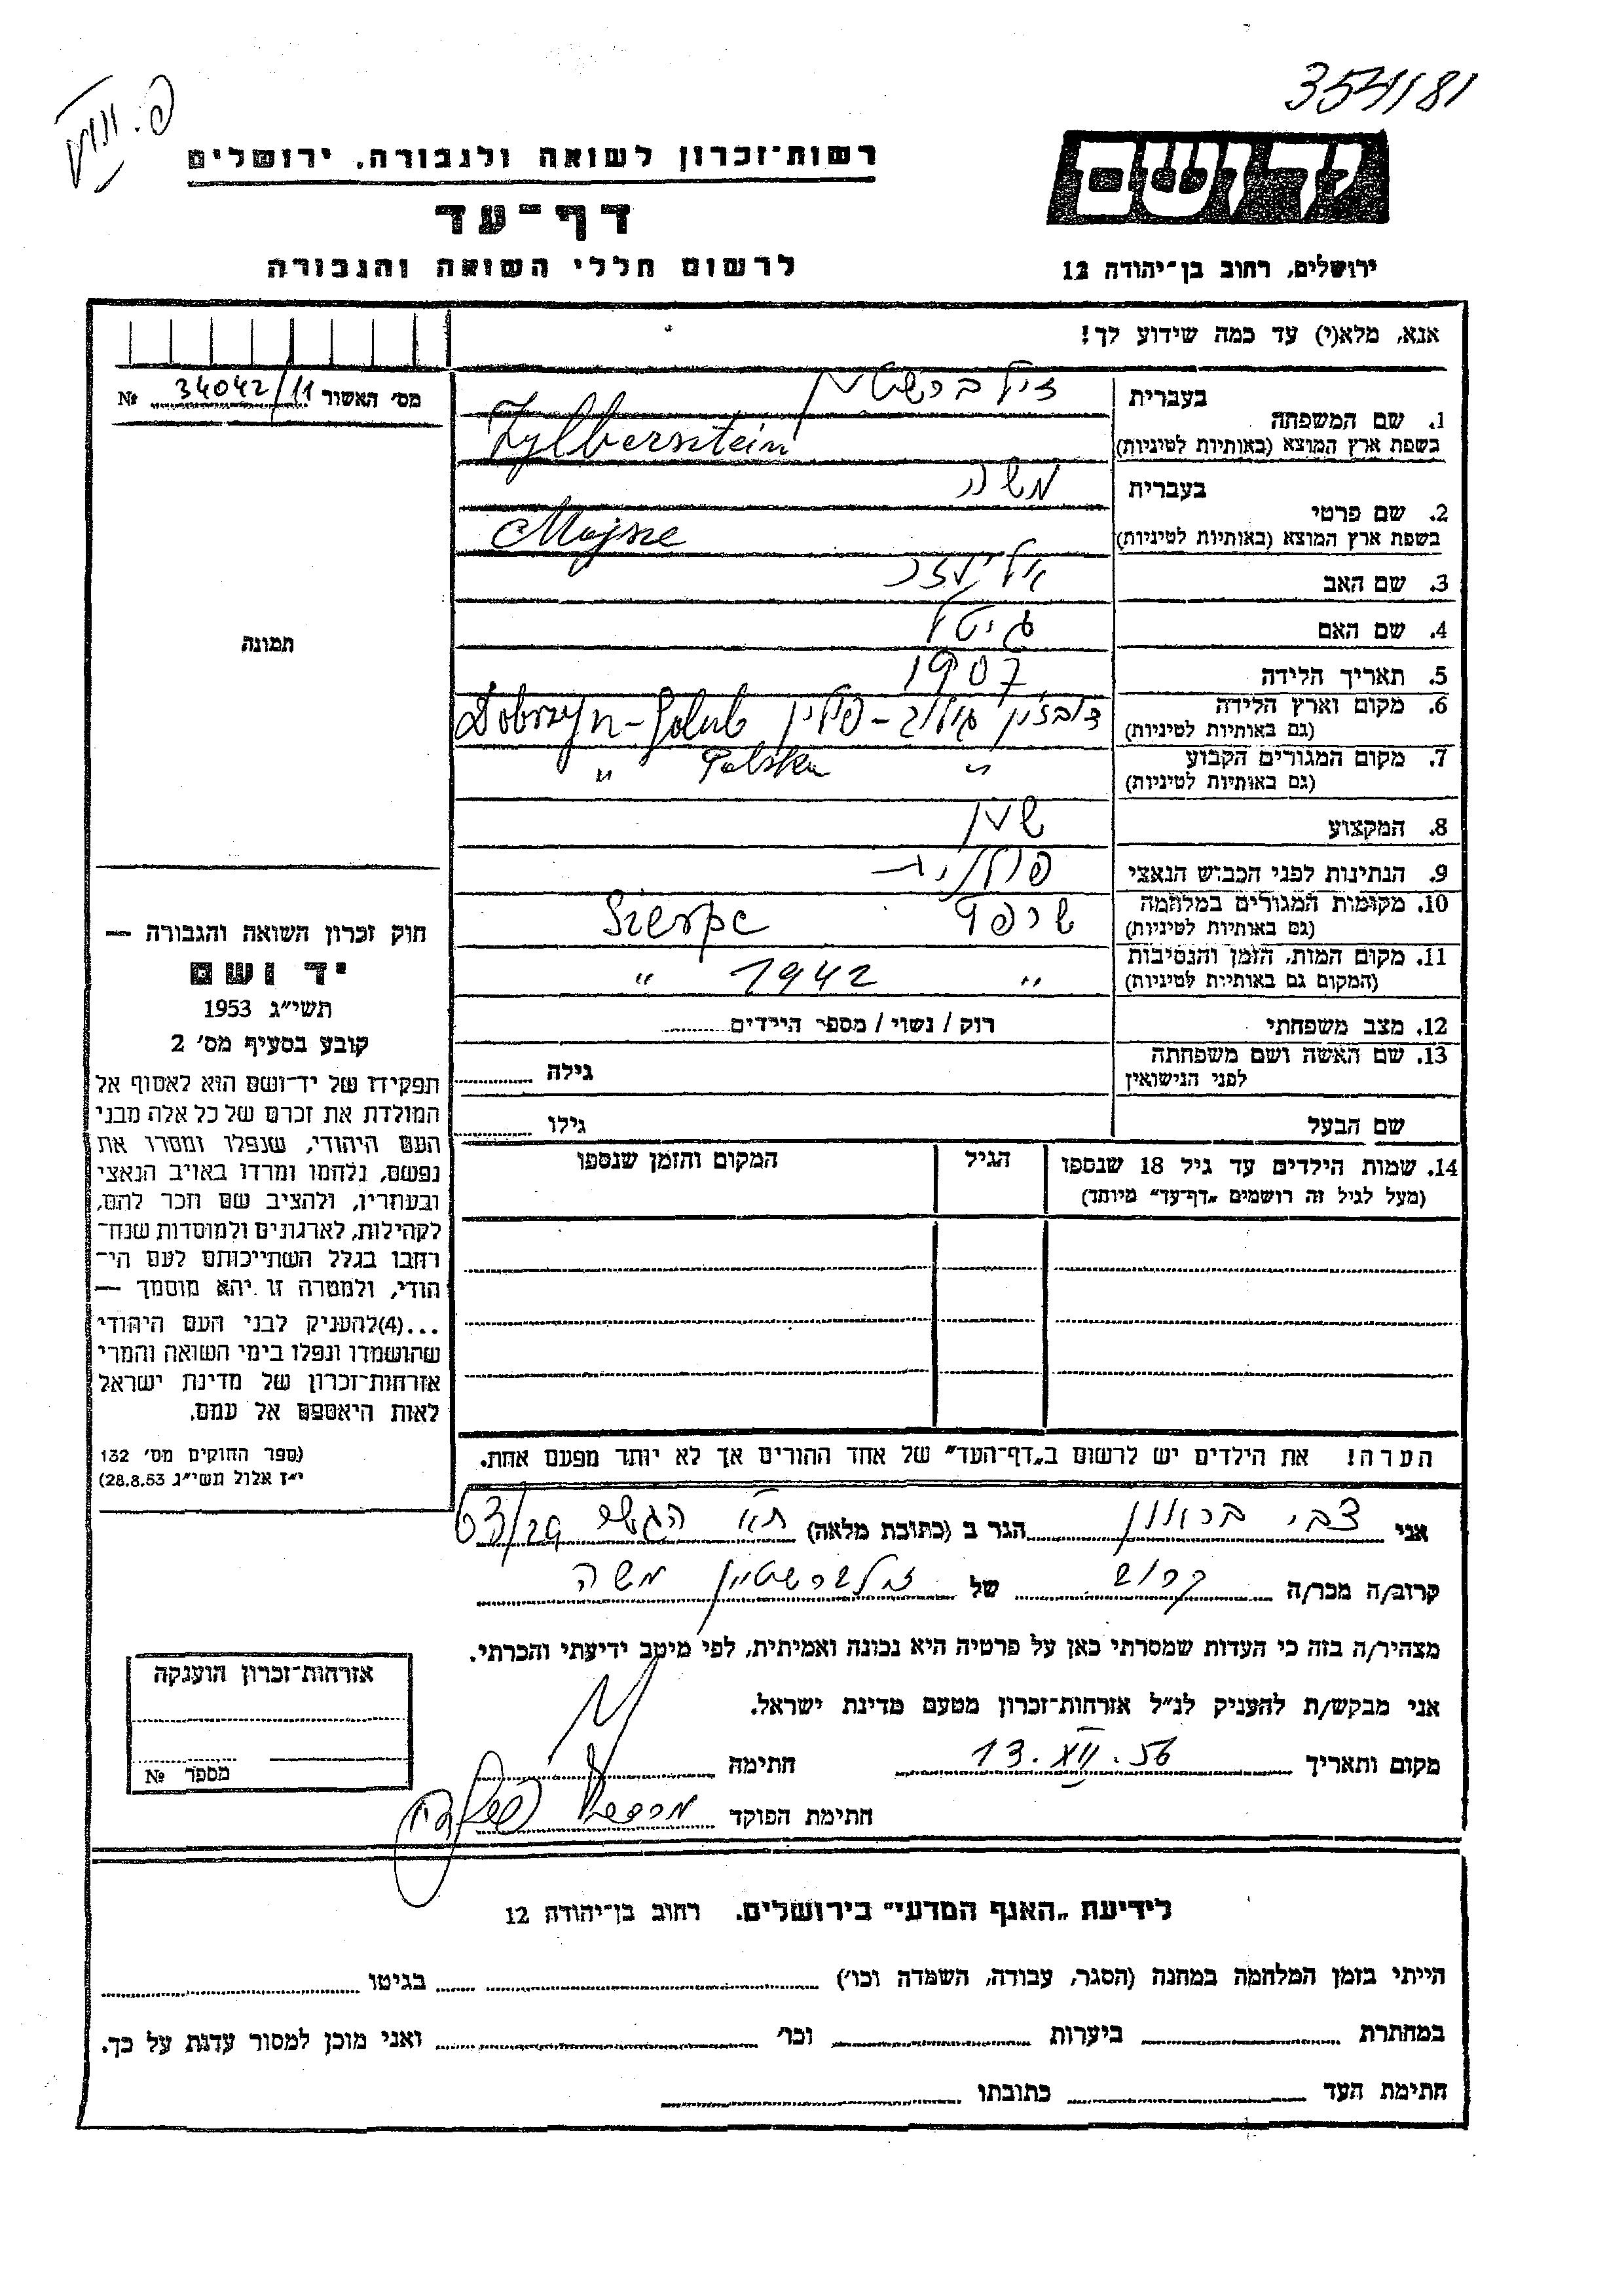 354/181
יד ושם
רשות־זכרון לשואה ולגבורה, ירושלים
דף־עד
לרשום חללי השואה והגבורה
ירושלים, רחוב בן־יהודה 12
אנא, מלא(י) עד כמה שידוע לך!
מס' האשור 34042/11 №
1. שם המשפחה
בעברית זילברשטיין
בשפת ארץ המוצא (באותיות לטיניות) Zylbersztein
2. שם פרטי
בעברית משה
בשפת ארץ המוצא (באותיות לטיניות) Mojsze
3. שם האב אליעזר
4. שם האם גיטל
5. תאריך הלידה 1907
6. מקום וארץ הלידה דובז'ין גולוב - פולין Dobrzyn-Golub
(גם באותיות לטיניות)
7. מקום המגורים הקבוע " Polska "
(גם באותיות לטיניות)
8. המקצוע שען
9. הנתינות לפני הכבוש הנאצי פולנית
10. מקומות המגורים במלחמה שרפץ
(גם באותיות לטיניות)
11. מקום המות, הזמן והנסיבות " 1942 "
(המקום גם באותיות לטיניות)
12. מצב משפחתי רוק / נשוי / מספר הילדים
13. שם האשה ושם משפחתה גילה
לפני הנישואין
שם הבעל גילו
14. שמות הילדים עד גיל 18 שנספו הגיל המקום והזמן שנספו
(מעל לגיל זה רושמים „דף־עד" מיוחד)
הערה! את הילדים יש לרשום ב„דף־העד" של אחד ההורים אך לא יותר מפעם אחת.
תמונה
חוק זכרון השואה והגבורה —
יד ושם
תשי"ג 1953
קובע בסעיף מס' 2
תפקידו של יד־ושם הוא לאסוף אל
המולדת את זכרם של כל אלה מבני
העם היהודי, שנפלו ומסרו את
נפשם, נלחמו ומרדו באויב הנאצי
ובעוזריו, ולהציב שם וזכר להם,
לקהילות, לארגונים ולמוסדות שנח־
רחבו בגלל השתייכותם לעם הי־
הודי, ולמטרה זו יהא מוסמך —
...(4)להעניק לבני העם היהודי
שהושמדו ונפלו בימי השואה והמרי
אזרחות־זכרון של מדינת ישראל
לאות היאספם אל עמם.
(ספר החוקים מס' 132
י"ז אלול תשי"ג 28.8.53)
אני צבי בראון הגר ב (כתובת מלאה) ת"א 63/29
קרוב/ה מכר/ה קרוב של זילברשטיין משה
מצהיר/ה בזה כי העדות שמסרתי כאן על פרטיה היא נכונה ואמיתית, לפי מיטב ידיעתי והכרתי.
אני מבקש/ת להעניק לנ"ל אזרחות־זכרון מטעם מדינת ישראל.
מקום ותאריך 13.XII.56 חתימה
חתימת הפוקד
אזרחות־זכרון הוענקה
מספר №
לידיעת „האגף המדעי" בירושלים. רחוב בן־יהודה 12
הייתי בזמן המלחמה במחנה (הסגר, עבודה, השמדה וכו') בגיטו
במחתרת ביערות וכו' ואני מוכן למסור עדות על כך.
חתימת העד כתובתו